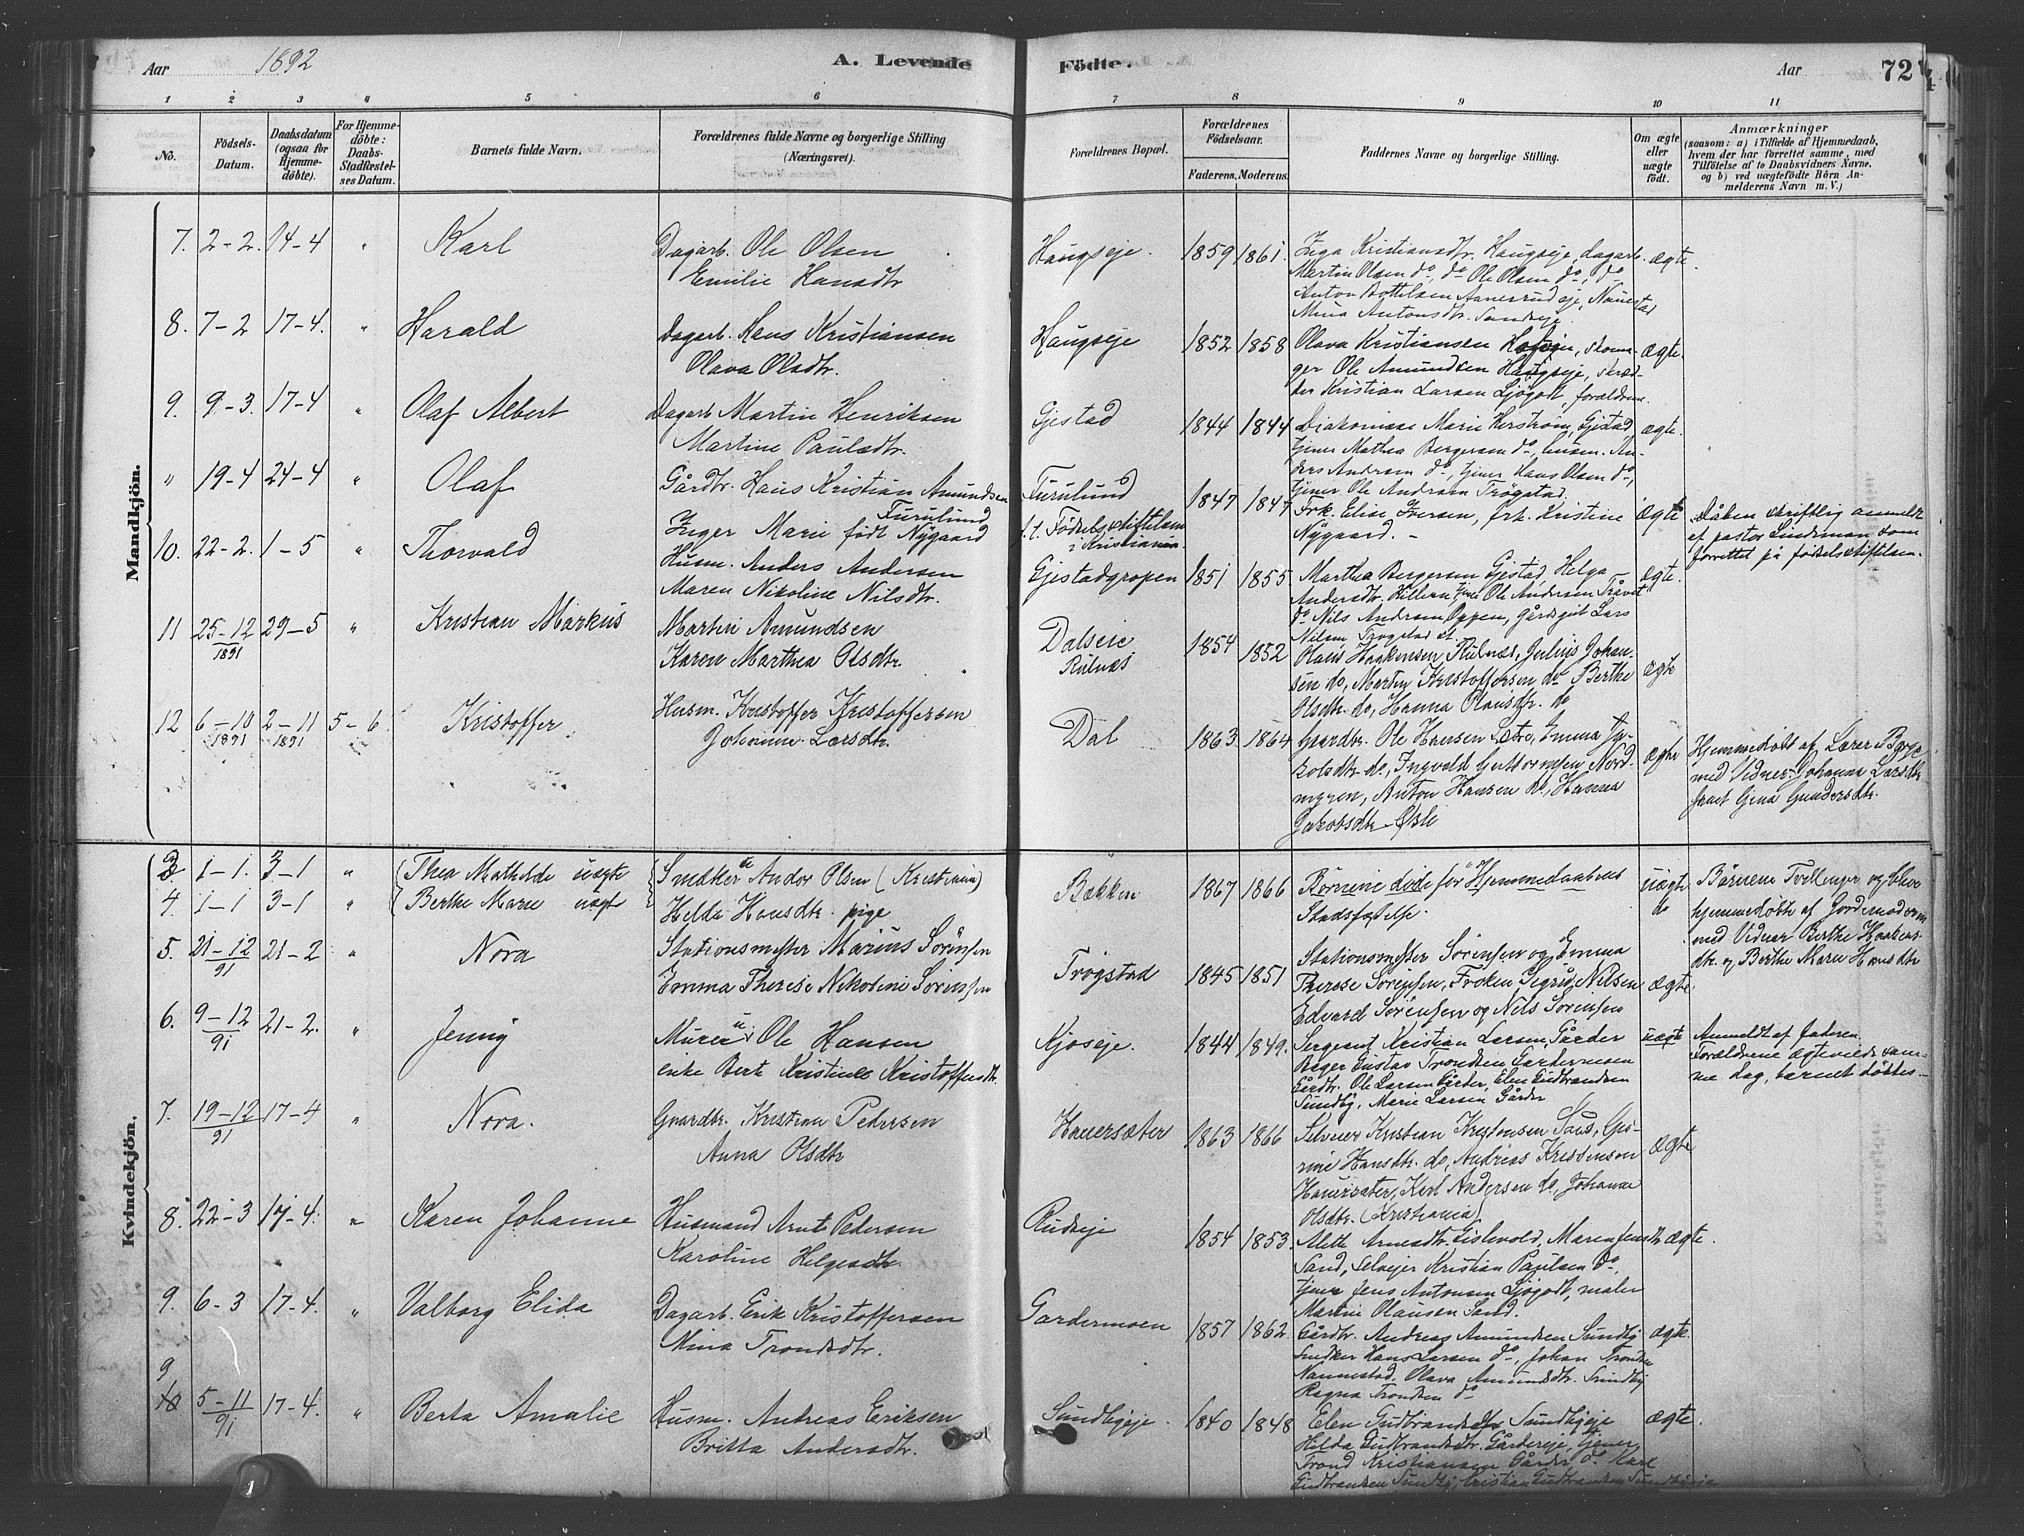 Aar 1892 A. Levende Födte. Aar 72
1 2 3 4 5 6 7 8 9 10 11
No.
Födsels-
Datum.
Daabsdatum
(ogsaa for
Hjemme-
döbte).
For Hjemme-
döbte:
Daabs-
Stadfæstel-
ses Datum.
Barnets fulde Navn.
Forældrenes fulde Navne og borgerlige Stilling
(Næringsvei).
Forældrenes Bopæl.
Forældrenes
Födselsaar.
Faderens. Moderens.
Faddernes Navne og borgerlige Stilling.
Om ægte
eller
uægte
födt.
Anmærkninger
(saasom: a) i Tilfælde af Hjemmedaab,
hvem der har forrettet samme, med
Tilföielse af to Daabsvidners Navne.
og b) ved uægtefödte Börn An-
melderens Navn m. V.)
Mandkjön.
7. 2-2. 14-4 " Karl
Dagarb. Ole Olsen
Emilie Hansdtr
Haugseje. 1859 1861.
Inga Kristiansdtr. Haugseje, dagarb.
Martin Olsen do, do Ole Olsen do, do
Anton Bottelsen Aanerudeje, Nanestad
Mina Antonsdtr. Sandseje.
ægte.
8. 7-2 17-4. " Harald
Dagarb. Hans Kristiansen
Olava Olsdtr.
Haugseje 1852 1858
Olava Kristiansen, skoma-
ger Ole Amundsen Haugseje, skræd-
der Kristian Larsen Ljøgodt, forældrene.
ægte.
9. 9-3. 17-4 " Olaf Albert
Dagarb. Martin Henriksen
Martine Paulsdtr.
Gjestad 1844 1844
Diakonisse Marie Herström, Gjestad
tjener Mathea Bergersen do, husm. An-
ders Andersen do, tjener Hans Olsen do,
tjener Ole Andersen Trøgstad.
ægte.
" 19-4 24-4 " Olaf
Gårdbr. Hans Kristian Amundsen
Furulund
Inger Marie født Nygaard
Furulund
f.t. Fødselsstiftelsen
i Kristiania.
1847 1847
Frk. Elise Iversen, frk. Kristine
Nygaard. -
ægte
Dåben skriftlig anmeldt
af pastor Lindeman som
forrettet på fødselsstiftelsen.
10. 22-2. 1-5 " Thorvald
Husm. Anders Andersen
Maren Nikoline Nilsdtr.
Gjestadgropen 1851 1855
Marthea Bergersen Gjestad, Helga
Andersdtr. Hillern, tjener Ole Andersen
do Nils Andersen Oppen, gårdsgut Lars
Nilsen Trøgstad
ægte.
11 25-12 29-5 " Kristian Markus
1891
Martin Amundsen
Karen Marthea Olsdtr.
Dalseie
Risnæs
1854 1852
Olaus Haakensen Risnæs, Julius Johan-
sen do, Martin Kristoffersen do Berthe
Olsdtr. do, Hanna Olausdtr. do
ægte
12 6-10 2-11 5-6 Kristoffer.
1891 1891
Husm. Kristoffer Kristoffersen
Johanne Larsdtr.
Dal 1863 1864
Gaardbr. Ole Hansen Sætre, Emma Ja-
kobsdtr. do, Ingvald Guttormsen Nord-
myren, Anton Hansen do, Hanna
Jakobsdtr. Øsle
ægte
Hjemmedøbt af Lærer Bryge
med Vidner Johanna Larsdtr
samt Gina Gundersdtr.
Kvindekjön.
3 1-1. 3-1 " Thea Mathilde uægte
4. 1-1 3-1 " Berthe Marie uægte
Snedker u Andor Olsen (Kristiania)
Helda Hansdtr. pige
Bækken 1867 1866
Børnene døde før Hjemmedaabens
Stadfæstelse.
uægte
do
Børnene Tvillinger og bleve
hjemmedøbte af Jordemoderen
med Vidner Berthe Haakens-
dtr. og Berthe Marie Hansdtr
5. 21-12 21-2 " Nora
91
Stationsmester Marius Sørensen
Emma Therese Nikoline Sørensen
Trøgstad 1845 1851
Stationsmester Sørensen og Emma
Therese Sørensen, Frøken Sigrid Nilsen
Edvard Sørensen og Nils Sørensen
ægte.
6. 9-12 21-2. " Jenny
91
Murer u Ole Hansen
enke Berte Kristine Kristoffersdtr.
Kjoseje. 1844 1849.
Sergeant Kristian Larsen, Gårder
Bager Gustav Trondsen Gardermoen
Gårdbr. Ole Larsen Gårder, Elen Gudbrandsen
Sundby, Marie Larsen Gårder
uægte
Anmeldt af faderen.
Forældrene ægteviede sam-
me dag, barnet døbtes-
7. 19-12 17-4 " Nora.
91
Gaardbr. Kristian Pedersen
Anna Olsdtr
Hauersæter 1863 1866
Selveier Kristian Kristensen Sand, Gu-
rine Hansdtr. do, Andreas Kristensen
Hauersæter, Karl Andersen do, Johanne
Olsdtr. (Kristiania)
ægte
8. 22-3 17-4. " Karen Johanne
Husmand Arnt Pedersen
Karoline Helgesdtr.
Rudseje 1854 1853.
Alette Arnesdtr. Gislevold, Maren Jensdtr
Sand, Selvejer Kristian Paulsen do,
tjener Jens Antonsen Ljøgodt, maler
Martin Olausen Sand.
ægte.
9. 6-3 17-4. " Valborg Elida
Dagarb. Erik Kristoffersen
Mina Trondsdtr.
Gardermoen 1857 1862.
Gårdbr. Andreas Amundsen Sundby
Snedker Hans Larsen do, Johan Trondsen
Nannestad, Olava Amundsdtr. Sundby
Ragna Trondsen do
ægte.
9
10 5-11 17-4. " Berta Amalie
91
Husm. Andreas Eriksen
Britta Andersdtr.
Sundbyeje. 1840 1848
Elen Gudbrandsdtr Sundbyeje
Hilda Gudbrandsdtr. Gårdereje, tjener
Trond Kristiansen Gårder do Karl
Gudbrandsen Sundby, Kristian Gudbrandsen Sundbyeje
ægte.